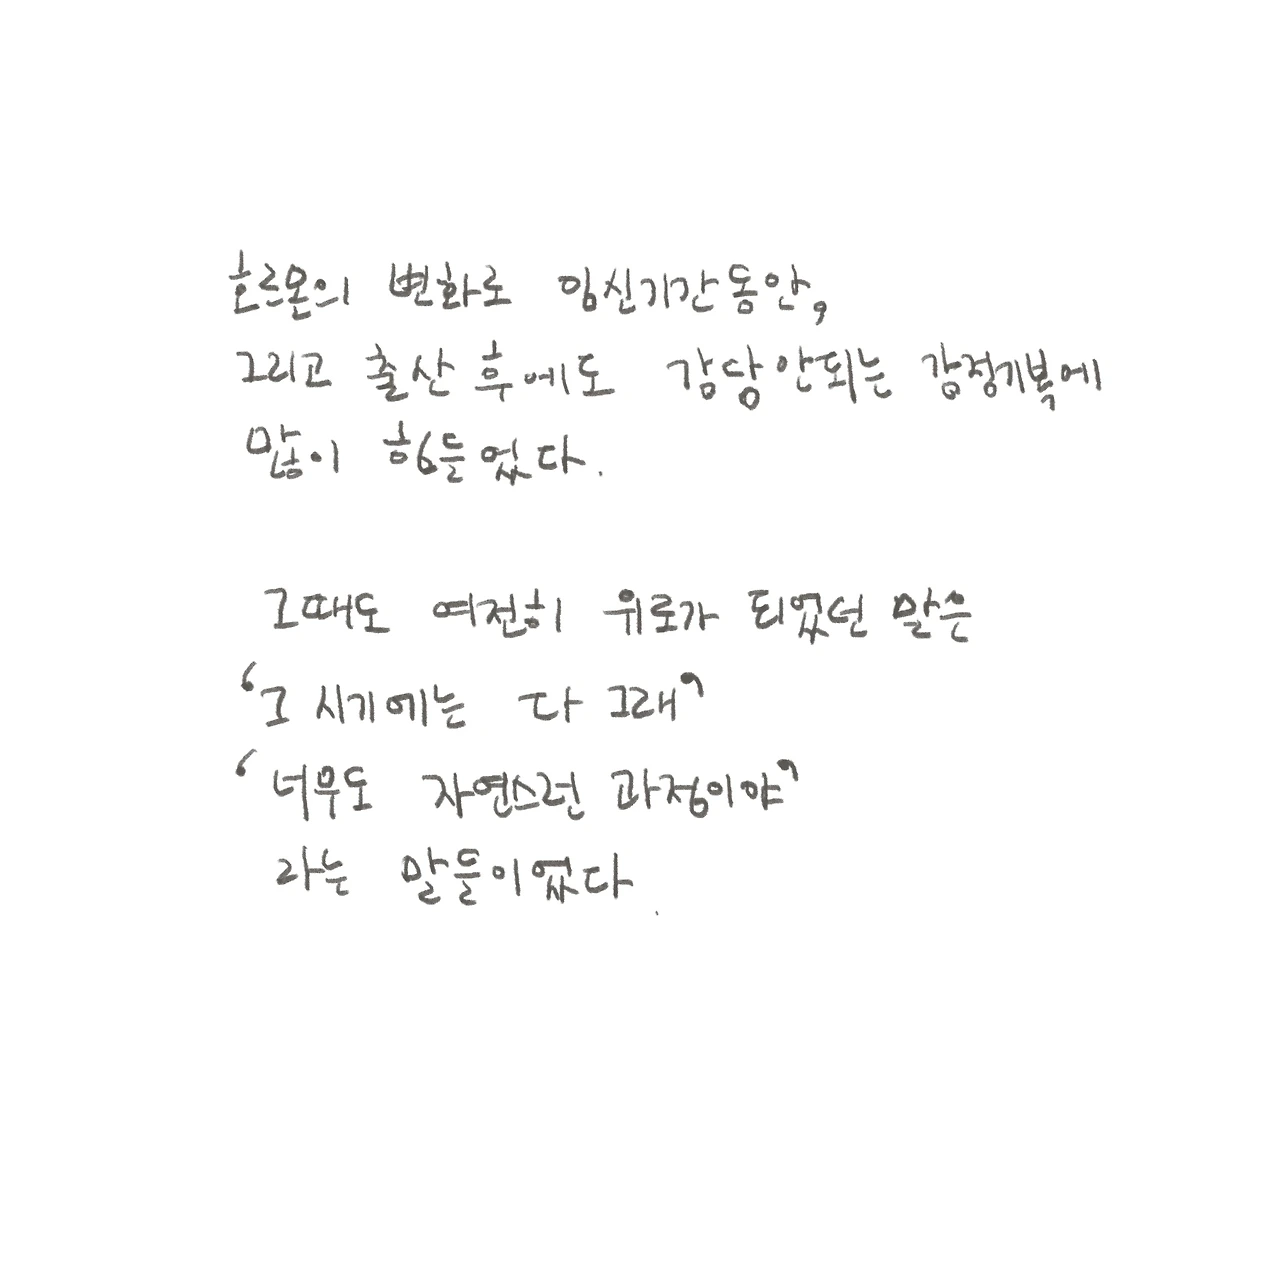 호르몬의 변화로 임신기간동안,
그리고 출산 후에도 감당안되는 감정기복에
많이 힘들었다.
그때도 여전히 위로가 되었던 말은
'그 시기에는 다 그래'
'너무도 자연스런 과정이야'
라는 말들이었다.